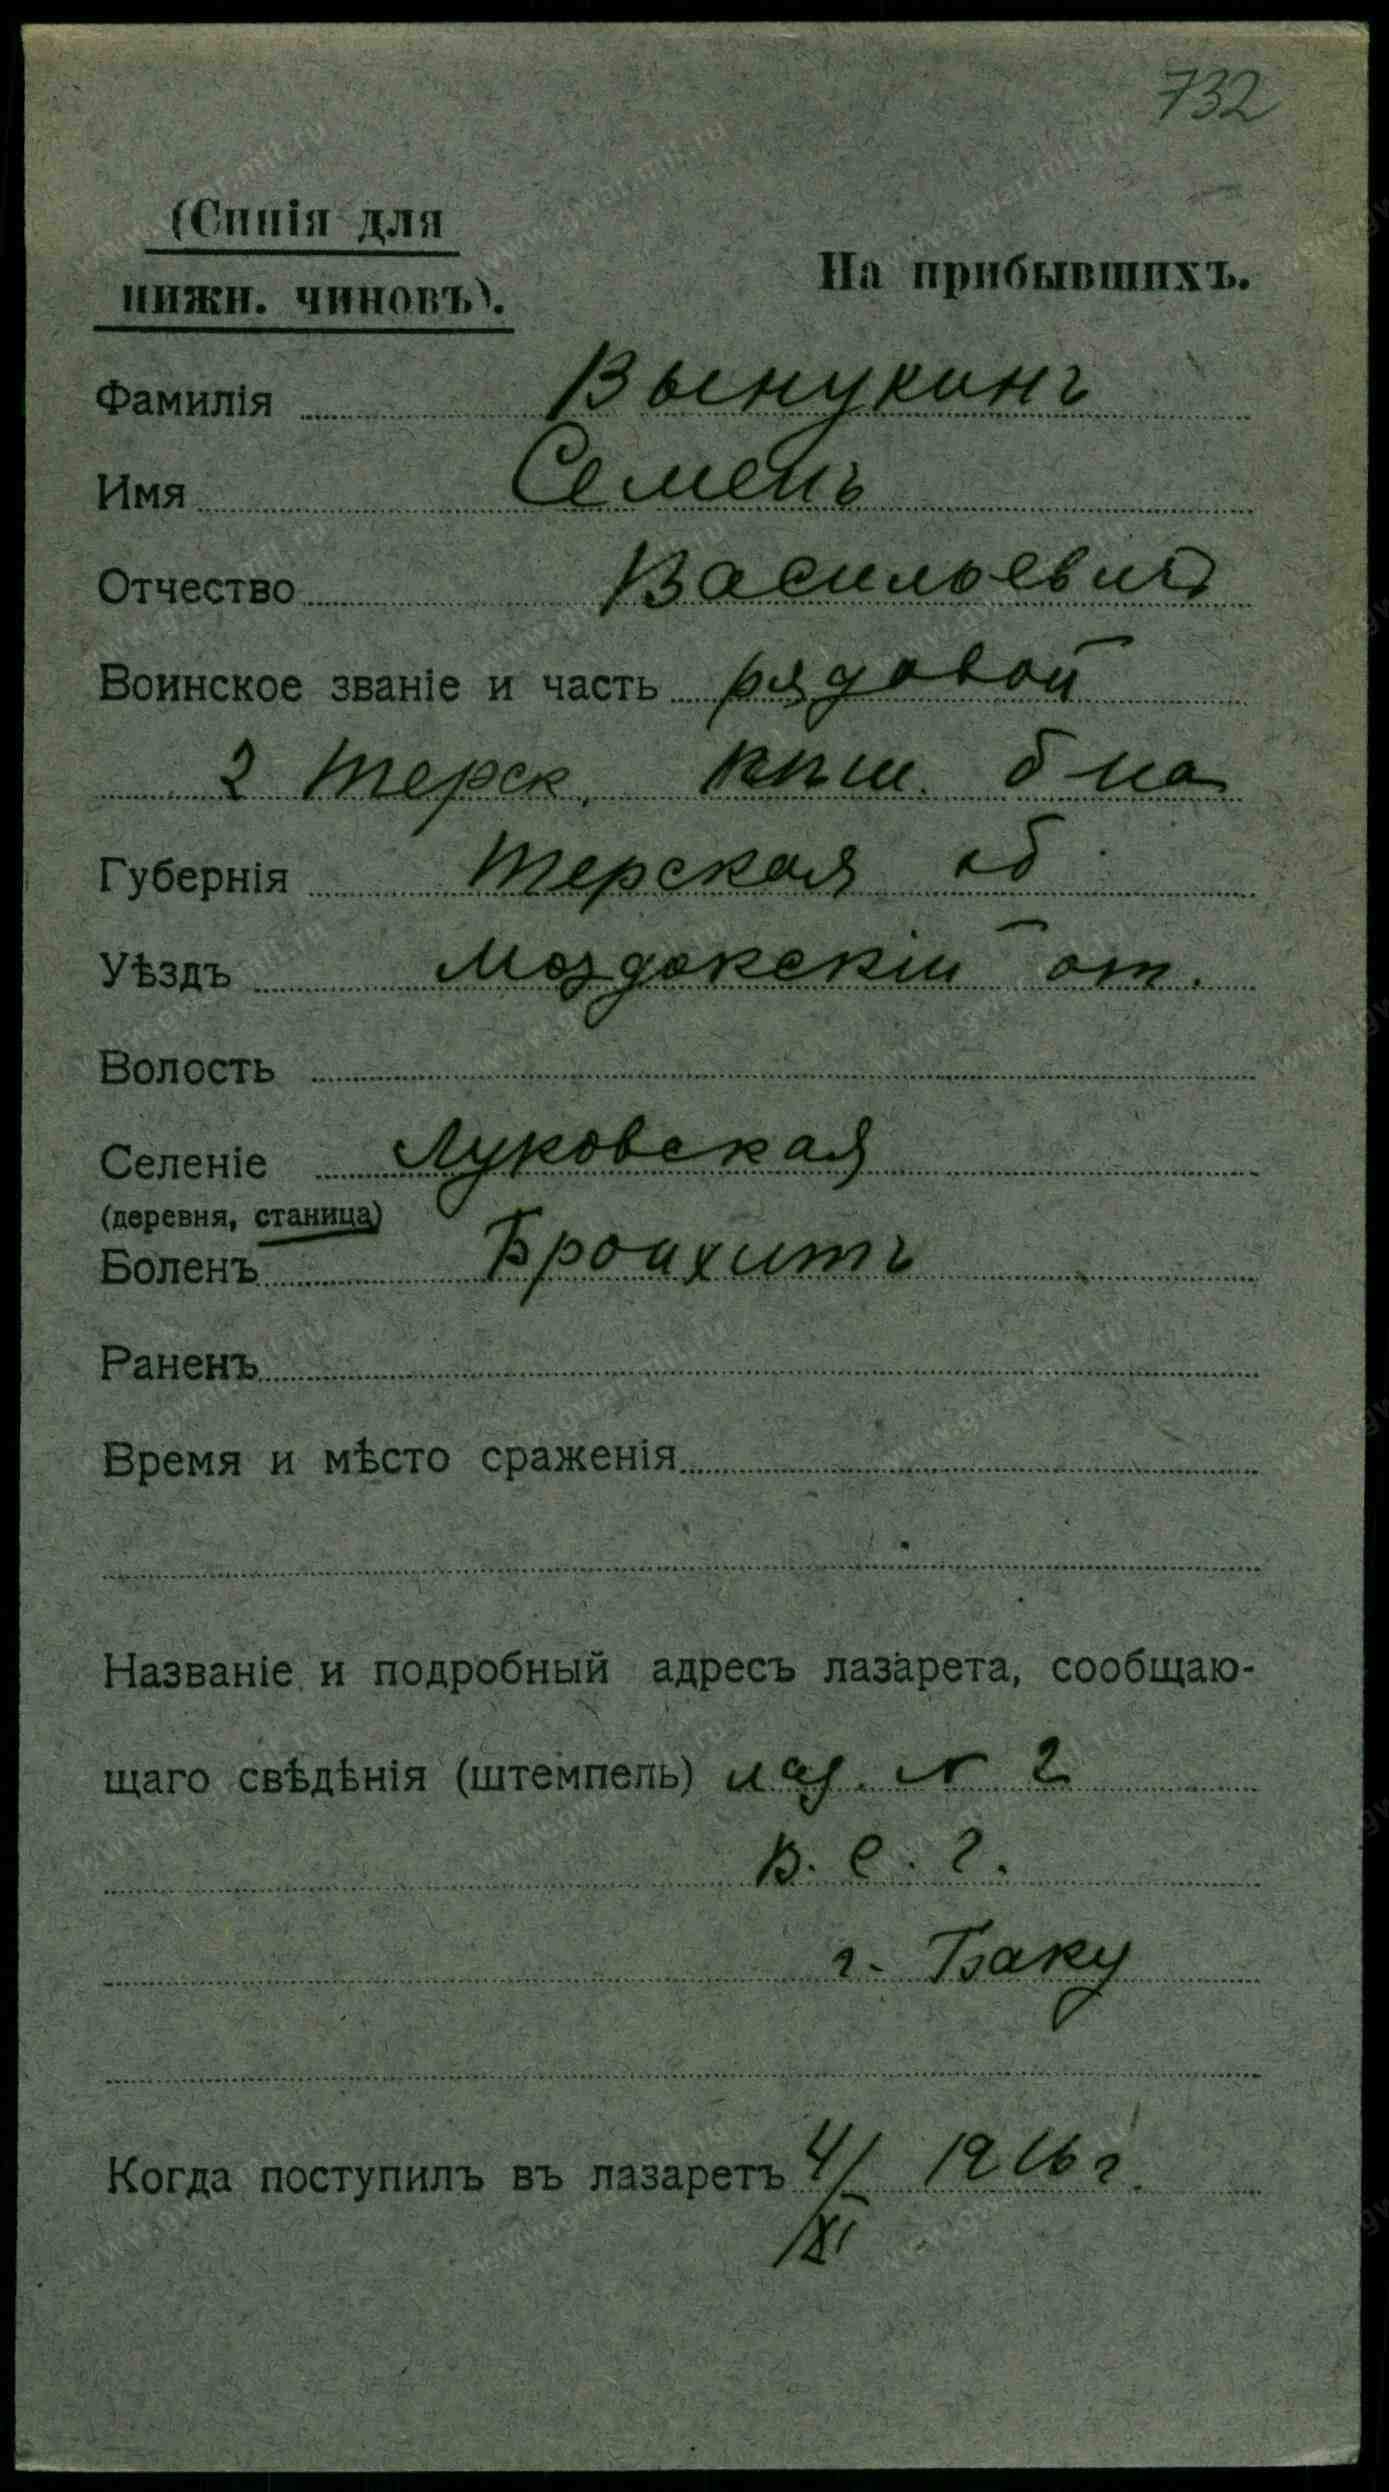 732
(Синія для
нижн. чиновъ).
На прибывшихъ.
Фамилія Вынукинъ
Имя Семенъ
Отчество Васильевич
Воинское званіе и часть рядовой
2 Терск.
Губернія Терская об
Уѣздъ Моздокскій от.
Волость
Селеніе Луковская
(деревня, станица)
Боленъ Бронхитъ
Раненъ
Время и мѣсто сраженія
Названіе и подробный адресъ лазарета, сообщаю-
щаго свѣдѣнія (штемпель) лаз. N 2
В. С. Г.
г. Баку
Когда поступилъ въ лазаретъ 4/XI 1916 г.